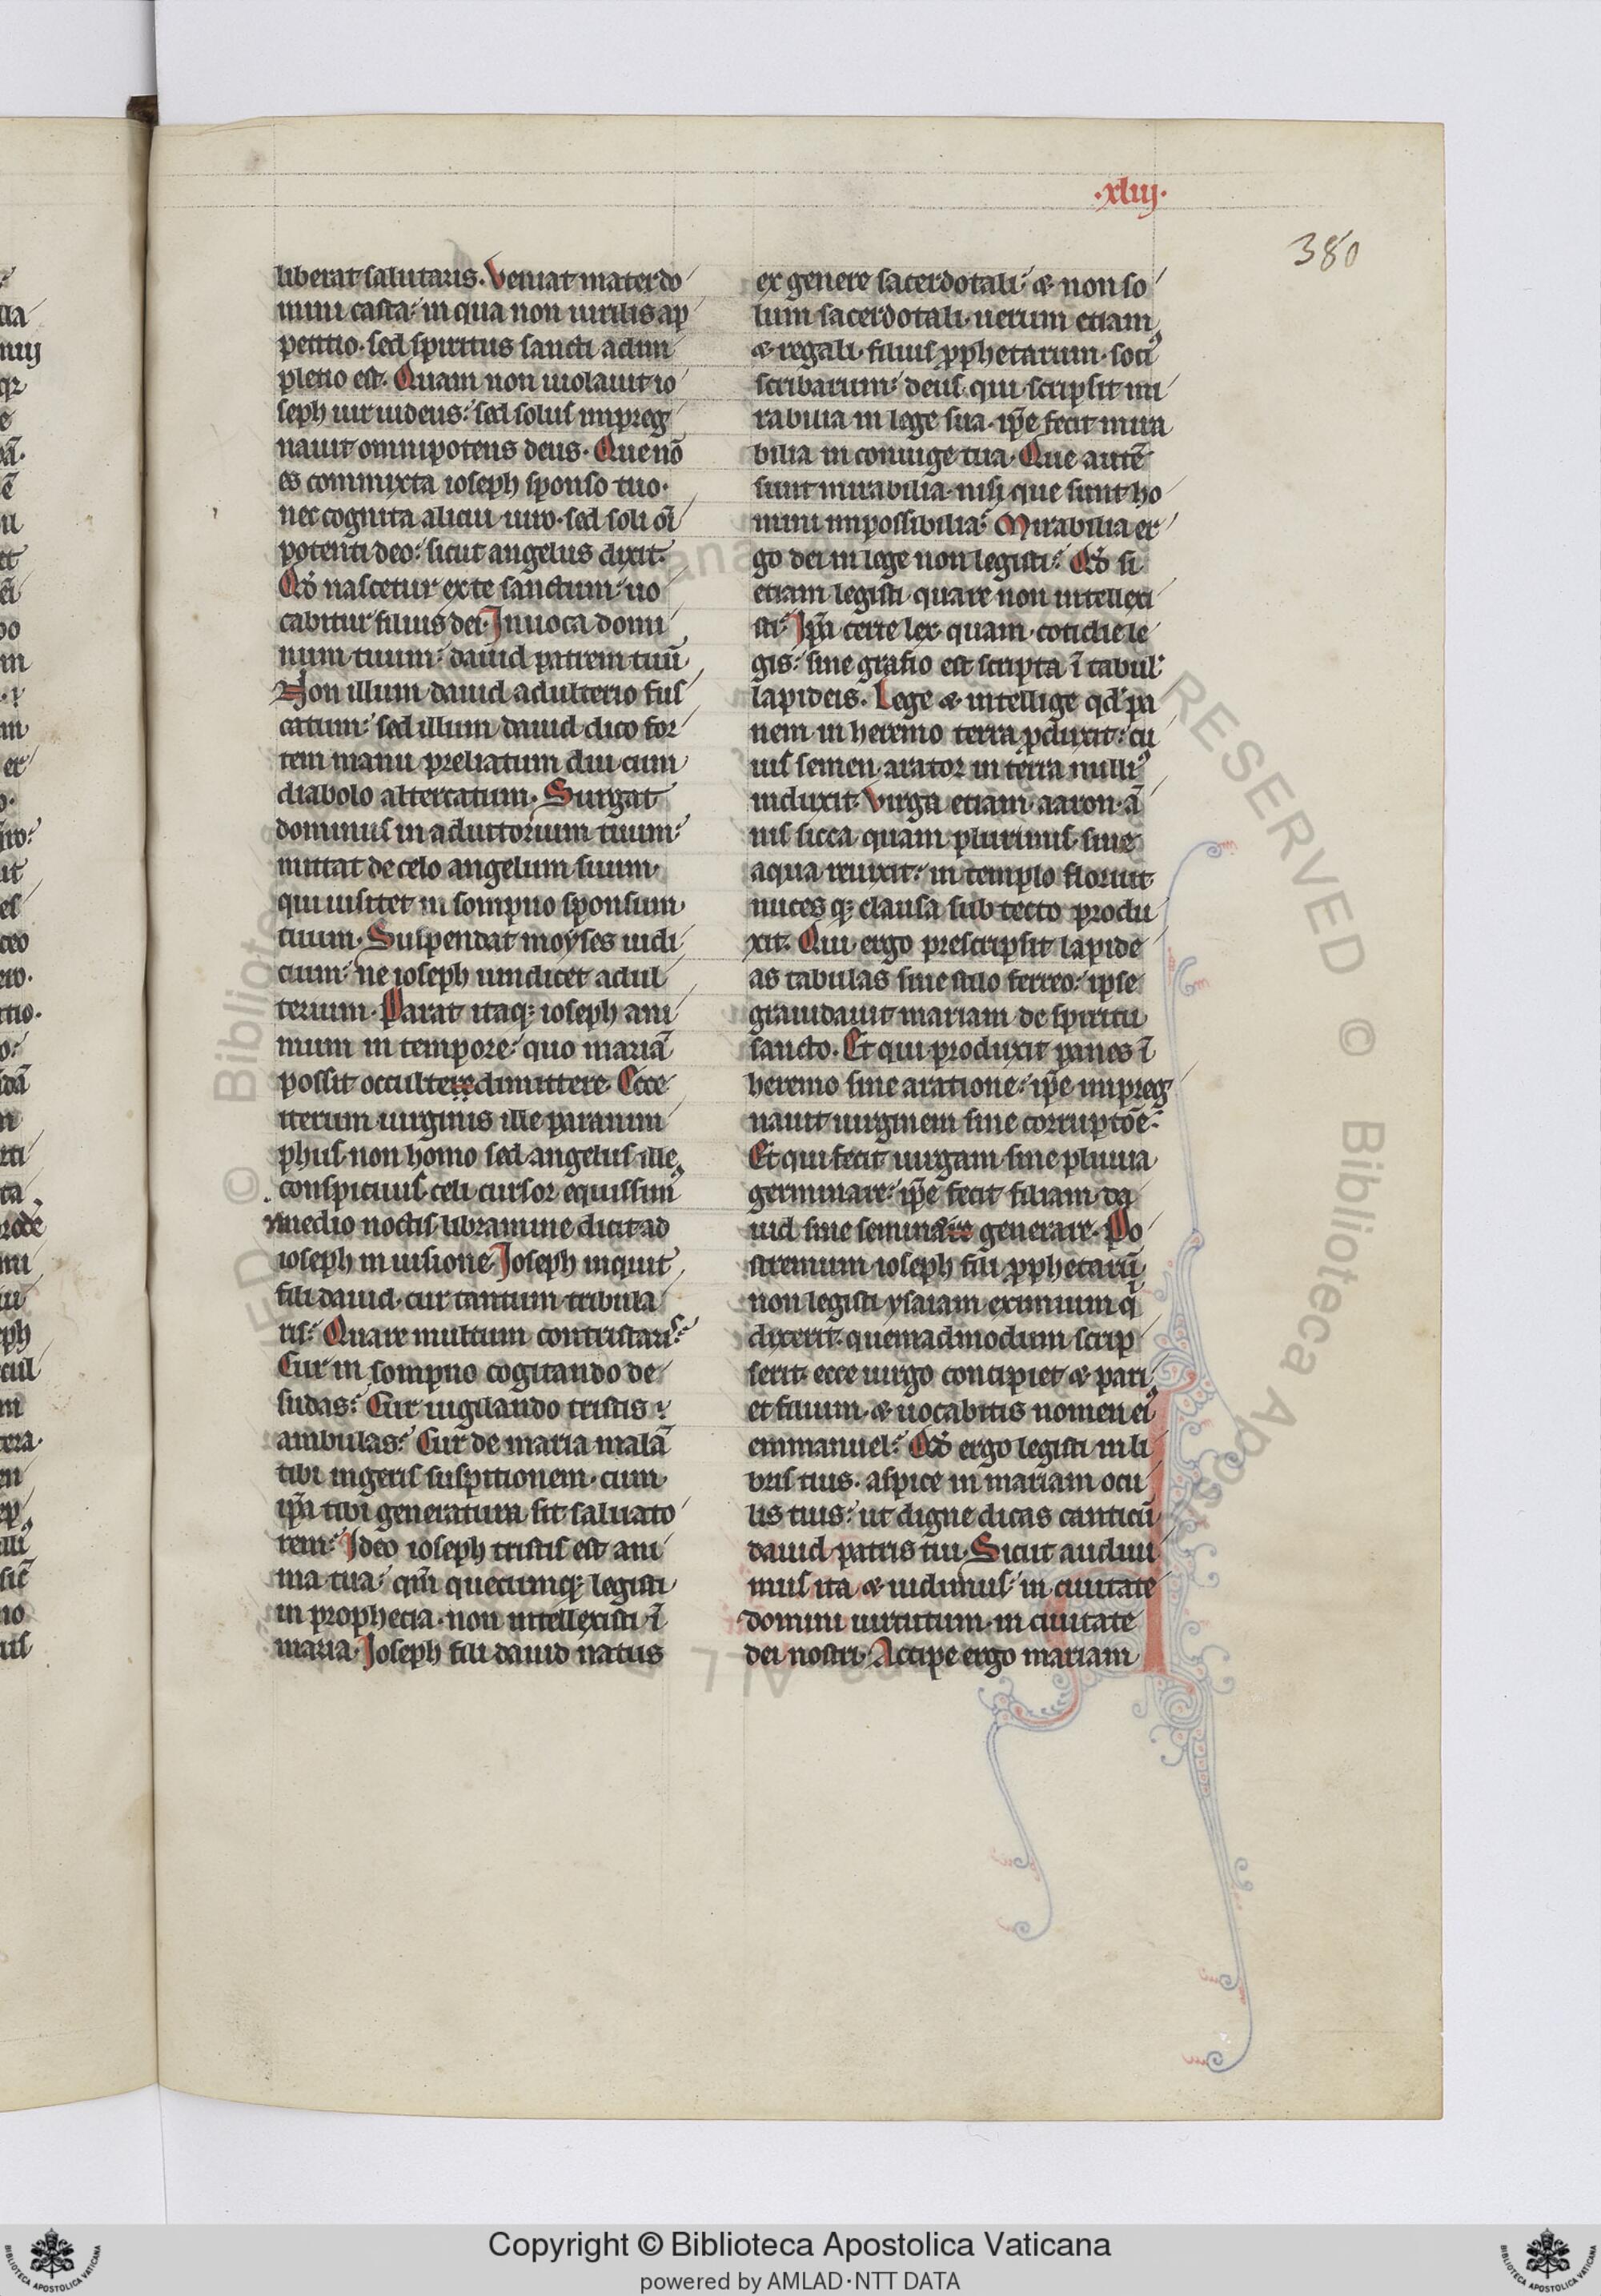 .xliij.
380
liberat salutaris. Veniat mater do
mini casta: in qua non uirilis ap
petitio. sed spiritus sancti adim
pletio est. Quam non uiolauit io
seph uir iudeus: sed solus impreg
nauit omnipotens deus. Que nō
es commixta ioseph sponso tuo.
nec cognita alicui uiro. sed soli oī
potenti deo: sicut angelus dixit.
Qđ nascetur ex te sanctum: uo
cabitur filius dei. Inuoca domi
num tuum: dauid patrem tuū
Non illum dauid adulterio fus
catum: sed illum dauid dico for
tem manu preliatum diu cum
diabolo altercatum. Surgat
dominus in adiutorium tuum:
mittat de celo angelum suum.
qui uisitet in sompno sponsum
tuum. Suspendat moyses iudi
cium: ne ioseph uindicet adul
terium. Parat itaq; ioseph ani
mum in tempore: quo mariā
possit occultere dimittere. Ecce
iterum uirginis ille paranim
phus. non homo sed angelus ille
conspicuus celi cursor equissim⁹
medio noctis libramine dicit ad
ioseph in uisione. Ioseph inquit
fili dauid. cur tantum tribula
ris: Quare multum contristaris:
Cur in sompno cogitando de
sudas: Cur uigilando tristis
ambulas: Cur de maria malā
tibi ingeris suspitionem. cum
ip̄a tibi generatura sit saluato
rem: Ideo ioseph tristis est ani
ma tua: qm̄ quecumq; legisti
in prophetia. non intellexisti ī
maria. Ioseph fili dauid natus
ex genere sacerdotali: & non so
lum sacerdotali. uerum etiam
& regali. filius ꝓphetarum. soci⁹
scribarum: deus. qui scripsit mi
rabilia in lege sua. ip̄e fecit mira
bilia in coniuge tua. Que autē
sunt mirabilia. nisi que sunt ho
mini impossibilia: Mirabilia er
go dei in lege non legisti: Qđ si
etiam legisti quare non intellexi
sti: Ip̄a certe lex quam cotidie le
gis: sine grafio est scripta ī tabul'
lapideis. Lege & intellige qd' pa
nem in heremo terra ꝓduxit: cu
ius semen arator in terra nulli⁹
induxit. Virga etiam aaron. ā
nis sicca quam plurimis. sine
aqua reuixit: in templo floruit
nuces q; clausa sub tecto produ
xit. Qui ergo prescripsit lapide
as tabulas sine stilo ferreo: ipse
grauidauit mariam de spiritu
sancto. Et qui produxit panes ī
heremo sine aratione: ip̄e impreg
nauit uirginem sine corruptōe:
Et qui fecit uirgam sine pluuia
germinare: ip̄e fecit filiam da
uid sine seminare generare. Po
stremum ioseph fili ꝓphetarū
non legisti ysaiam eximium qͥ
dixerit. quemadmodum scrip
serit. ecce uirgo concipiet & pari
et filium. & uocabitis nomen ei⁹
emmanuel: Qđ ergo legisti in li
bris tuis. aspice in mariam ocu
lis tuis: ut digne dicas canticū
dauid patris tui. Sicut audiui
mus ita & uidimus: in ciuitate
domini uirtutum. in ciuitate
dei nostri. Accipe ergo mariam
Copyright © Biblioteca Apostolica Vaticana
powered by AMLAD·NTT DATA